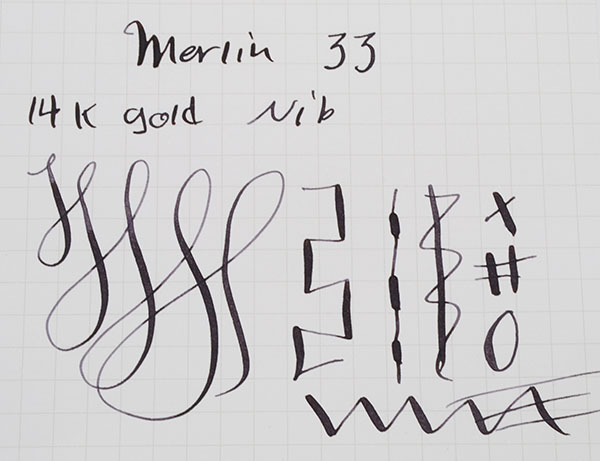 Merlin 33
14K gold Nib
X
#
O